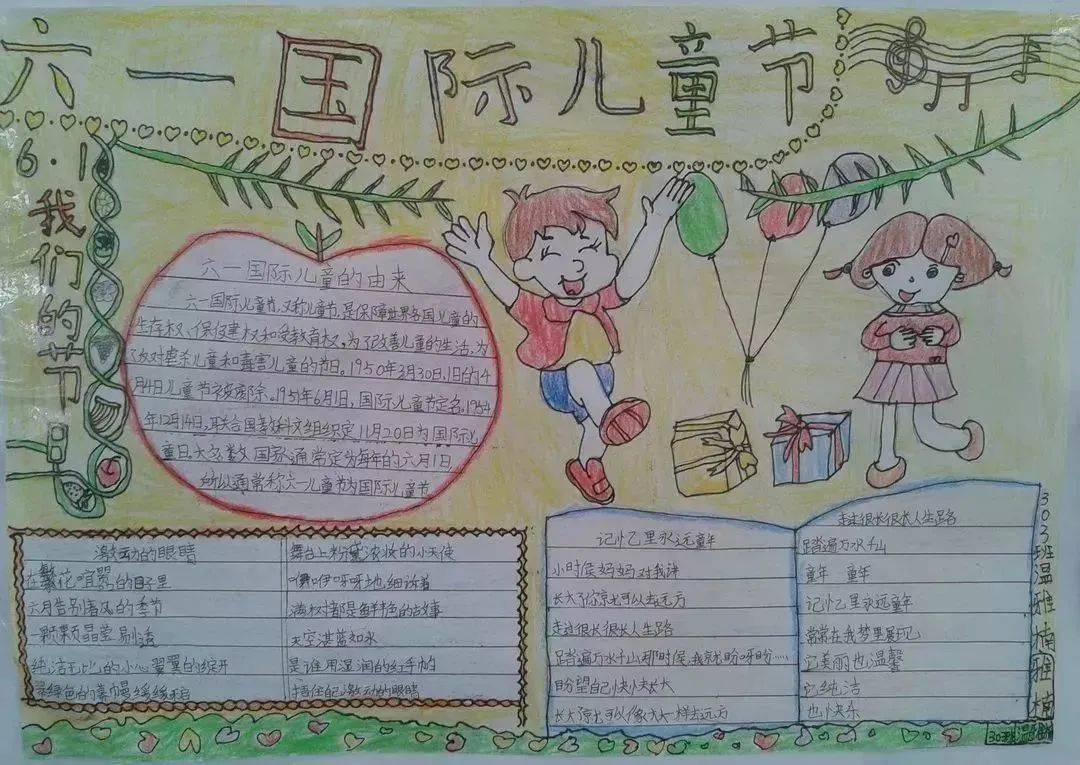 六一国际儿童节
6·1
我们的节
六一国际儿童的由来
六一国际儿童节,又称儿童节,是保障世界各国儿童的
生存权、保健权和受教育权,为了改善儿童的生活,为
了反对虐杀儿童和毒害儿童的节日。1950年3月30日,旧的4
月4日儿童节被废除。1951年6月1日,国际儿童节定名,1954
年12月14日,联合国教科文组织定11月20日为国际儿
童日大多数国家通常定为每年的六月1日
所以通常称六一儿童节为国际儿童节
激动的眼睛
在繁花喧嚣的日子里
六月告别春风的季节
一颗颗晶莹剔透
纯洁无比的小心翼翼的绽开
绿色的幕缓缓开启
舞台上粉黛浓妆的小天使
咿咿呀呀地细诉着
满树都是鲜艳的故事
天空湛蓝如水
是谁用湿润的红手帕
捂住自己激动的眼睛
记忆里永远童年
小时侯妈妈对我讲
长大了你就可以去远方
走过很长很长人生路
踏遍万水千山那时侯,我就盼呀盼……
盼望自己快快长大
长大了就可以像大人一样去远方
走过很长很长人生路
踏遍万水千山
童年 童年
记忆里永远童年
常常在我梦里展现
它美丽也温馨
它纯洁
也快乐
303班温雅楠雅楠
303班温雅楠